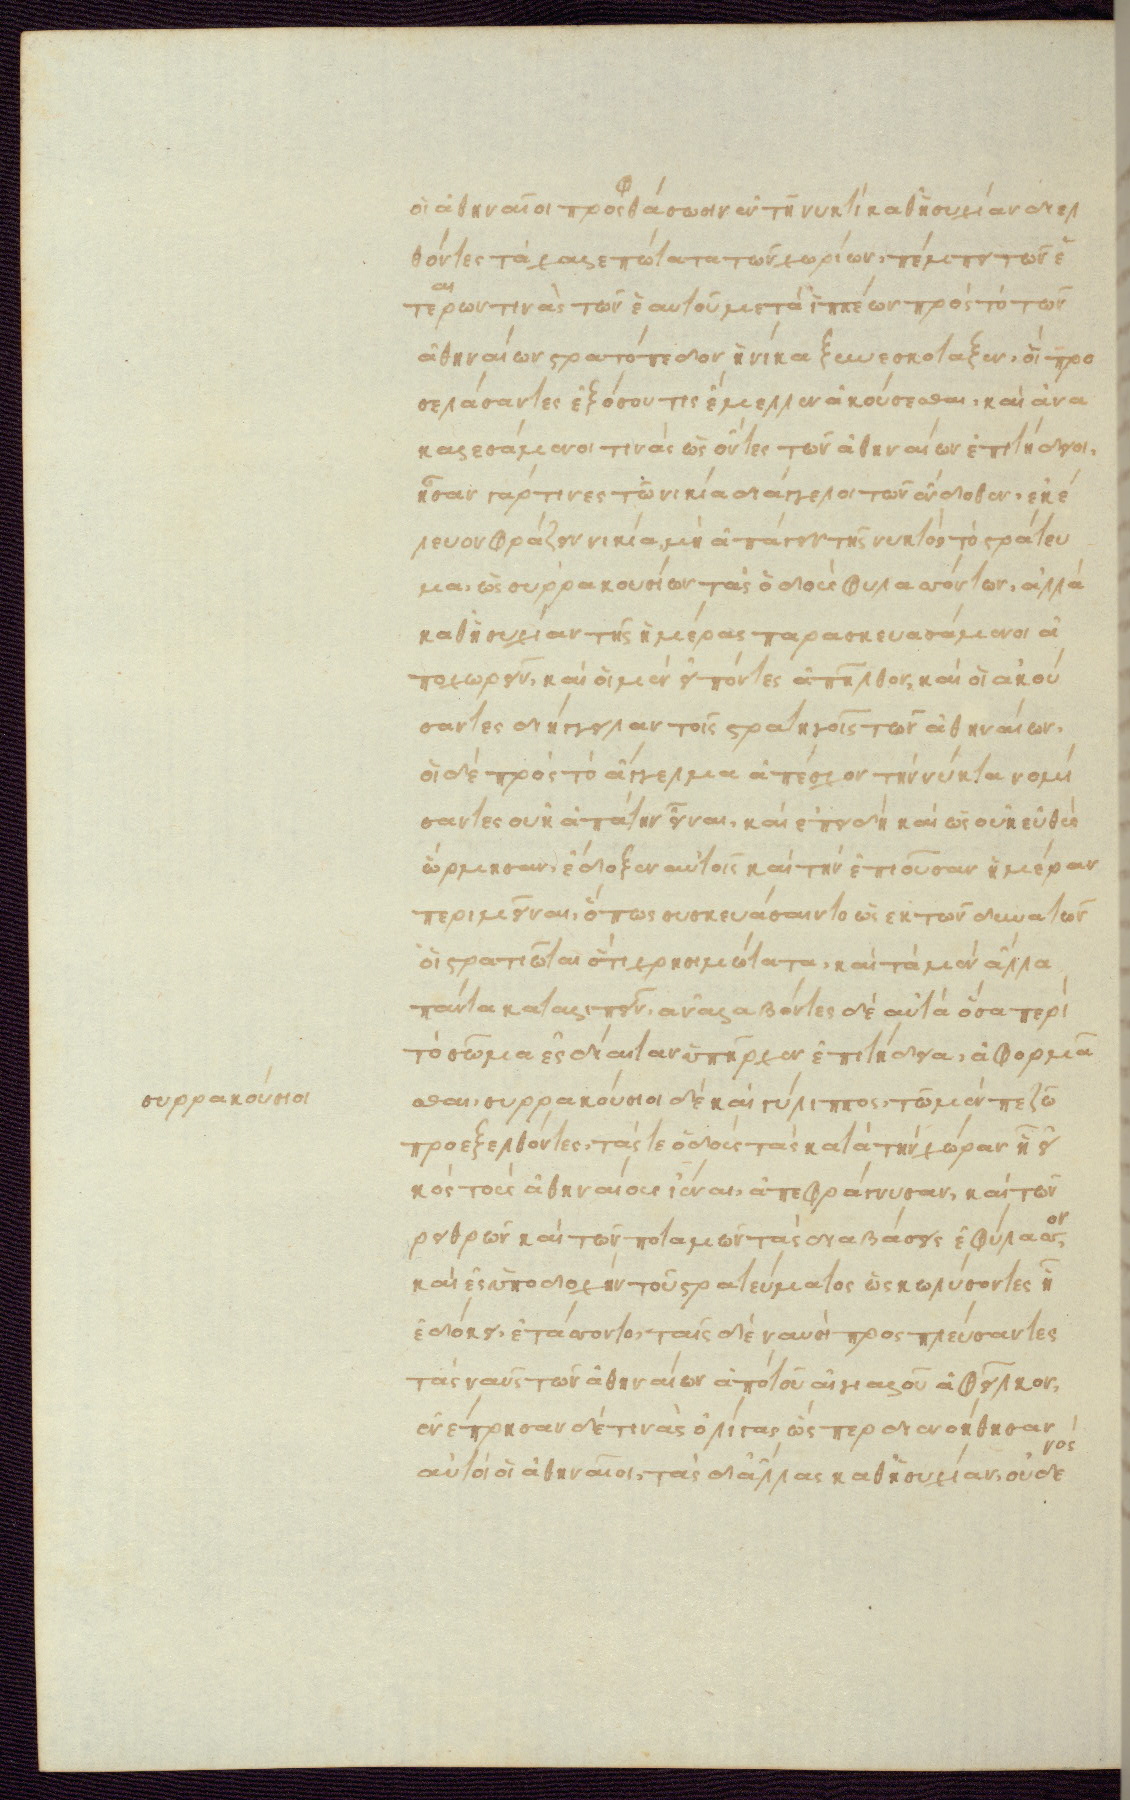 οἱ ἀθηναῖοι προφθάσωσιν ἐν τῆ νυκτὶ καθησυχίαν διελ
θόντες τὰ χαλεπώτατα τῶν χωρίων, πέμπει τῶν ἑ
ταίρων τινὰς τῶν ἑαυτοῦ μετὰ ἱππέων πρὸς τὸ τῶν
ἀθηναίων στρατόπεδον ἡνίκα ξυνεσκόταζεν, οἳ προ
σελάσαντες ἐξ ὅσου τις ἔμελλεν ἀκούσεσθαι, καὶ ἀνα
καλεσάμενοι τινὰς ὡς ὄντες τῶν ἀθηναίων ἐπιτήδειοι,
ἦσαν γάρ τινες τῶ νικία διάγγελοι τῶν ἔνδοθεν, ἐκέ
λευον φράζειν νικία, μὴ ἀπάγειν τῆς νυκτὸς τὸ στράτευ
μα, ὡς συρρακουσίων τὰς ὁδοὺς φυλασσόντων, ἀλλὰ
καθησυχίαν τῆς ἡμέρας παρασκευασάμενοι ἀ
ποχωρεῖν, καὶ οἱ μὲν εἰπόντες ἀπῆλθον, καὶ οἱ ἀκού
σαντες διήγγειλαν τοῖς στρατηγοῖς τῶν ἀθηναίων,
οἱ δὲ πρὸς τὸ ἄγγελμα ἀπέσχον τὴν νύκτα νομί
σαντες οὐκ ἀπάτην εἶναι, καὶ ἐπειδὴ καὶ ὣς οὐκ εὐθὺς
ὥρμησαν, ἔδοξεν αὐτοῖς καὶ τὴν ἐπιοῦσαν ἡμέραν
περιμεῖναι, ὅπως συσκευάσαιντο ὡς ἐκ τῶν δυνατῶν
οἱ στρατιῶται ὅτι χρησιμώτατα, καὶ τὰ μὲν ἄλλα
πάντα καταλιπεῖν, ἀναλαβόντες δὲ αὐτὰ ὅσα περὶ
τὸ σῶμα ἐς δίαιταν ὑπῆρχεν ἐπιτήδεια, ἀφορμᾶ
σθαι, συρρακούσιοι δὲ καὶ γύλιππος, τῶ μὲν πεζῶ
προεξελθόντες, τάς τε ὁδοὺς τὰς κατὰ τὴν χώραν ἧ εἰ
κὸς τοὺς ἀθηναίους ἰέναι, ἀπεφράγνυσαν, καὶ τῶν
ρείθρων καὶ τῶν ποταμῶν τὰς διαβάσεις ἐφύλασσον,
καὶ ἐς ὑποδοχὴν τοῦ στρατεύματος ὡς κωλύσοντες ἧ
ἐδόκει, ἐτάσσοντο, ταῖς δὲ ναυσὶ προσπλεύσαντες
τὰς ναῦς τῶν ἀθηναίων ἀπὸ τοῦ αἰγιαλοῦ ἀφεῖλκον,
ἐνέπρησαν δέ τινας ὀλίγας, ὥσπερ διενοήθησαν
αὐτοὶ οἱ ἀθηναῖοι, τὰς δ' ἄλλας καθησυχίαν, οὐδενὸς
συρρακούσιοι